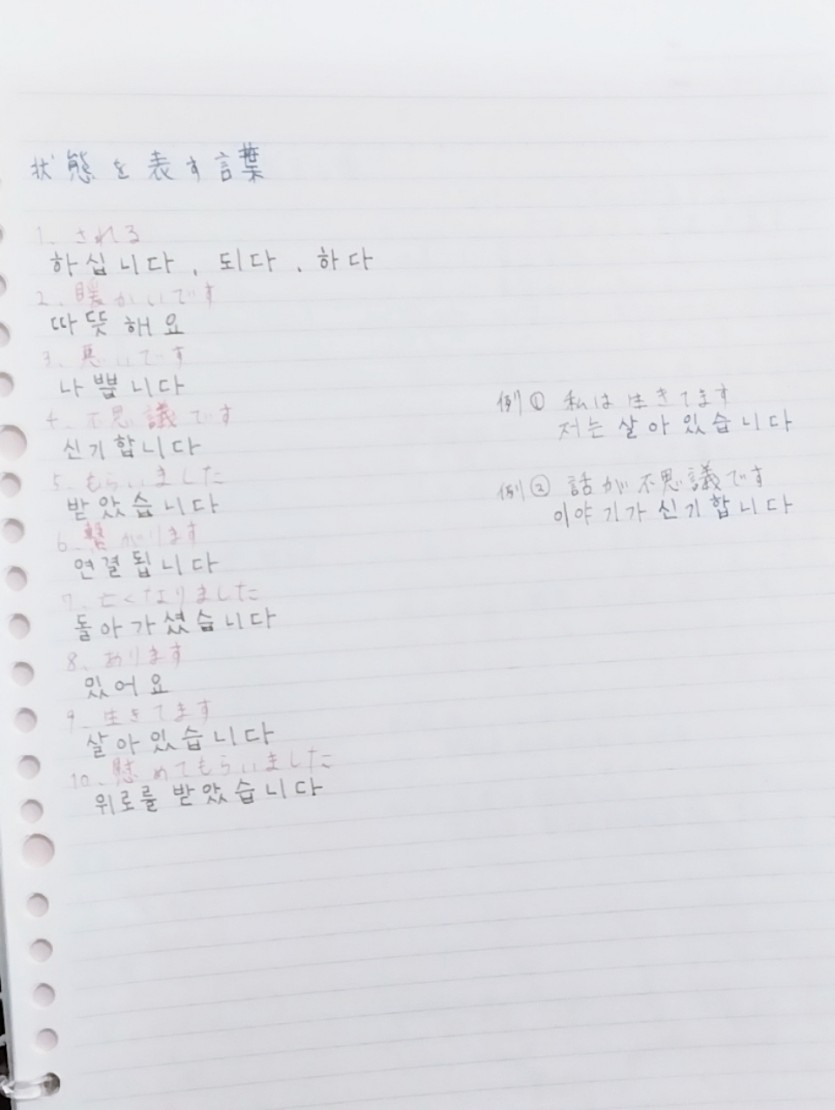 状態を表す言葉
1. される
하십니다, 되다, 하다
2. 暖かいです
따뜻해요
3. 悪いです
나쁩니다
4. 不思議です
신기합니다
5. もらいました
받았습니다
6. 繋がります
연결됩니다
7. 亡くなりました
돌아가셨습니다
8. あります
있어요
9. 生きてます
살아있습니다
10. 慰めてもらいました
위로를 받았습니다
例① 私は生きてます
저는 살아있습니다
例② 話が不思議です
이야기가 신기합니다